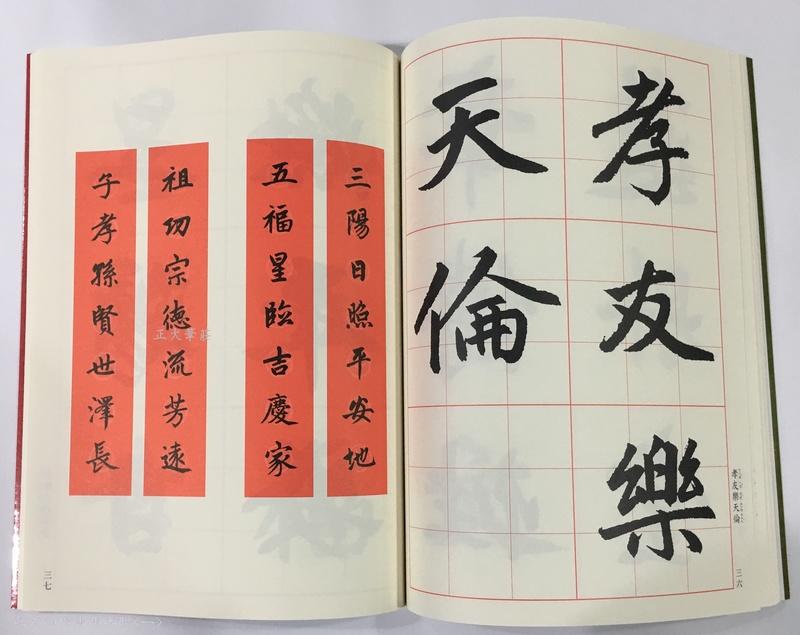 孝友樂
天倫
孝友樂天倫
三六
三陽日照平安地
五福星臨吉慶家
祖功宗德流芳遠
子孝孫賢世澤長
正大筆莊
三七